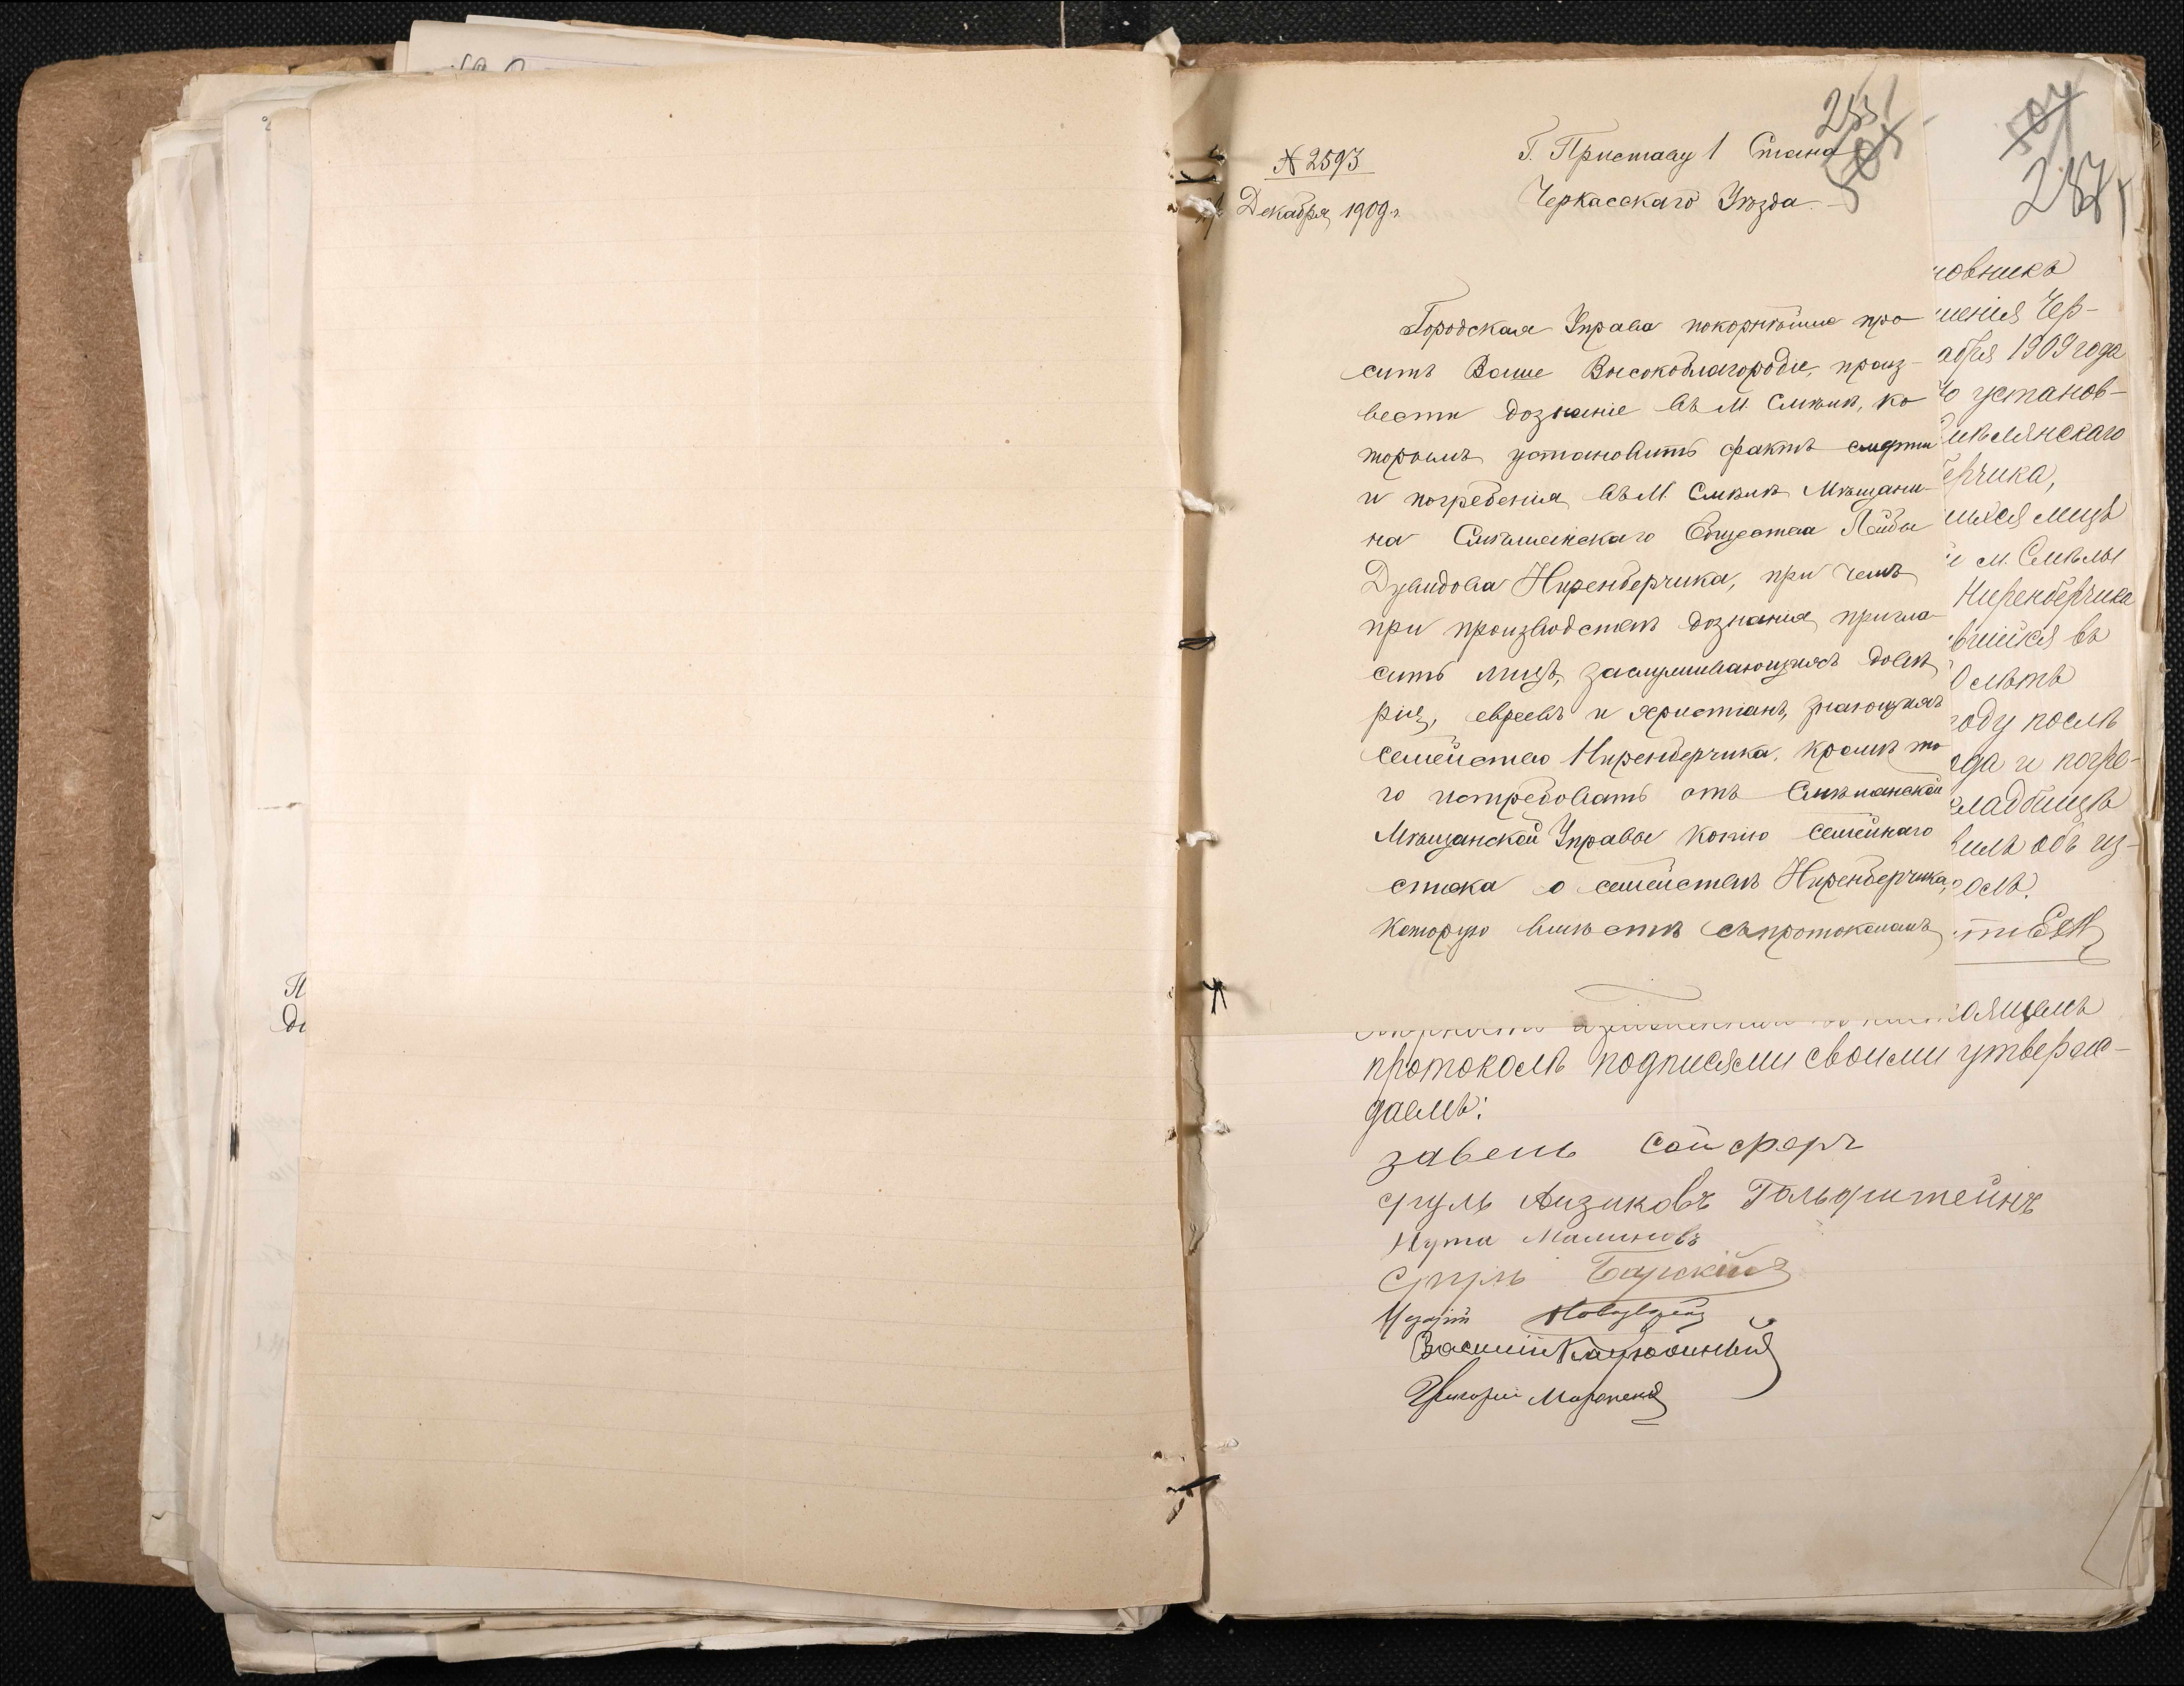 № 2593
Декабря 1909 г.
233
504
Г. Приставу 1 Стана
Черкасскаго Уѣзда.
Городская Управа покорнѣйше про-
ситъ Ваше Высокоблагородіе, произ-
вести дознаніе въ М. Смѣлѣ, ко-
торымъ установить фактъ смерти
и погребенія въ М. Смѣлѣ Мѣщани-
на Смѣлянскаго Общества Лейбы
Дувидова Ниренберчика, при чемъ
при производствѣ дознанія пригла-
сить лицъ, заслуживающихъ довѣ-
рія, евреевъ и христіанъ, знающихъ
семейство Ниренберчика, кромѣ то-
го истребовать отъ Смѣлянской
Мѣщанской Управы копію семейнаго
списка о семействѣ Ниренберчика,
которую вмѣстѣ съ протоколомъ
504
новникъ
ленія Чер-
абря 1909 года
установ-
мѣлянскаго
ерчика,
шіяся лица
м. Смѣлы
Ниренберчика
вшійся въ
лѣтъ
году послѣ
ода и погре-
кладбищѣ
вилъ объ из-
оящемъ
протоколѣ подписями своими утверж-
даемъ:
завель Сойферъ
сруль Аизиковъ Гольдштейнъ
Нута Малиновъ
Сруль Барскій
Василій
Григорій